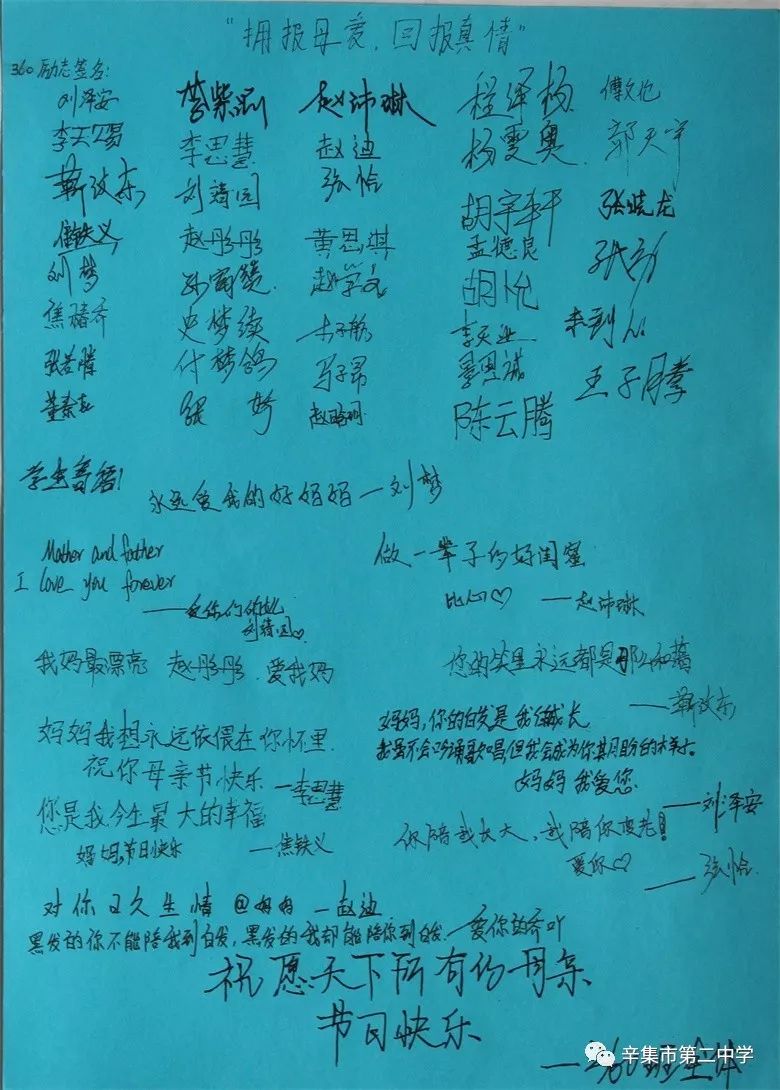 "拥报母爱，回报真情"
360励志签名：
刘泽安 营柴涵 赵沛琳 程泽杨
李天赐 李思慧 赵迪 杨雯奥 郭天宇
靳汝东 刘靖园 张恰 胡宇轩 张晓龙
焦铁义 赵彤彤 黄思淇 孟德良
刘梦 赵学文 胡悦
焦禧乔 史梦续
张若腾 付梦鸽 马子昂 王子腾
张梦 陈云腾
学生寄语：
永远爱我的好妈妈—刘梦
Mother and father
I love you forever
——爱你们的
刘靖园♡
做一辈子的好闺蜜
比心♡ ——赵沛琳
我妈最漂亮 赵彤彤 爱我妈
您的笑里永远都是那么和蔼
——靳汝东
妈妈我想永远依偎在你怀里
祝你母亲节快乐 —李思慧
妈妈，你的白发是我成长
我虽不会吟诵歌唱但我会成为你
妈妈 我爱您
——刘泽安
您是我今生最大的幸福
妈妈，节日快乐 ——焦铁义
你陪我长大，我陪你变老！
爱你♡
——张恰
对你日久生情 @妈妈 —赵迪
黑发的你不能陪我到白发，黑发的我却能陪你到白发. —爱你的乔吖
祝愿天下所有的母亲
节日快乐
—360班全体
辛集市第二中学